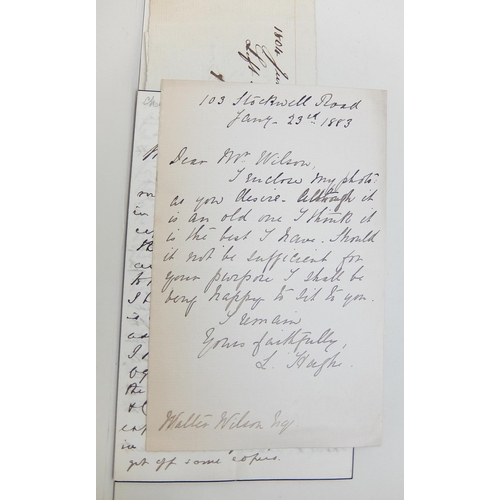 1804
103 Stockwell Road
Jany - 23rd 1883
Dear Mr Wilson,
I enclose my photo-
as you desire - although it
is an old one I think it
is the best I have. Should
it not be sufficient for
your purpose I shall be
very happy to sit to you.
I remain
Yours faithfully,
L. Hugh.
Walter Wilson Esq
get off some copies.